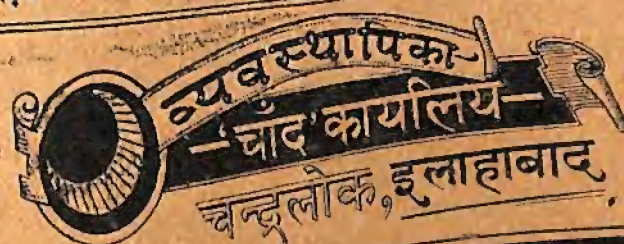 व्यवस्थापिका
—'चाँद' कार्यालय—
चन्द्रलोक, इलाहाबाद